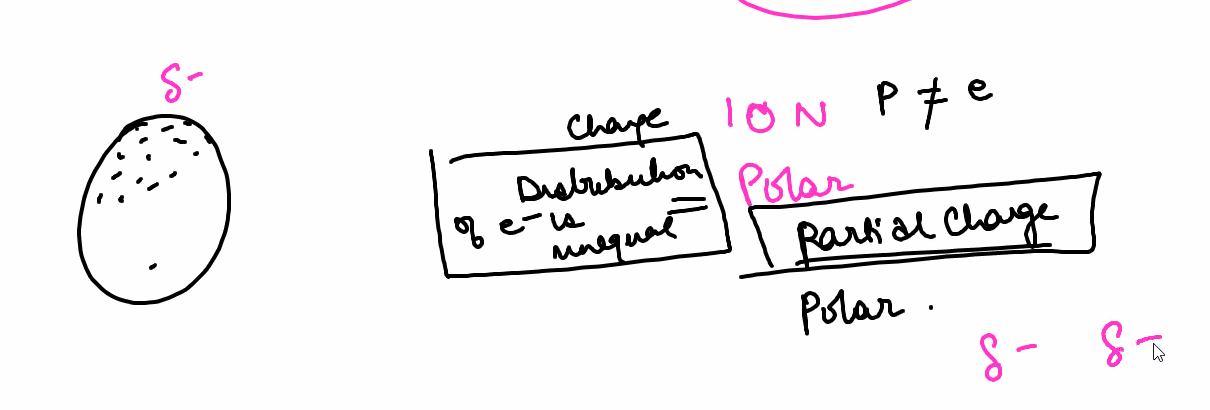 δ-
Charge
Distribution
of e⁻ is
unequal
ION P ≠ e
Polar
Partial Charge
Polar .
δ- δ-